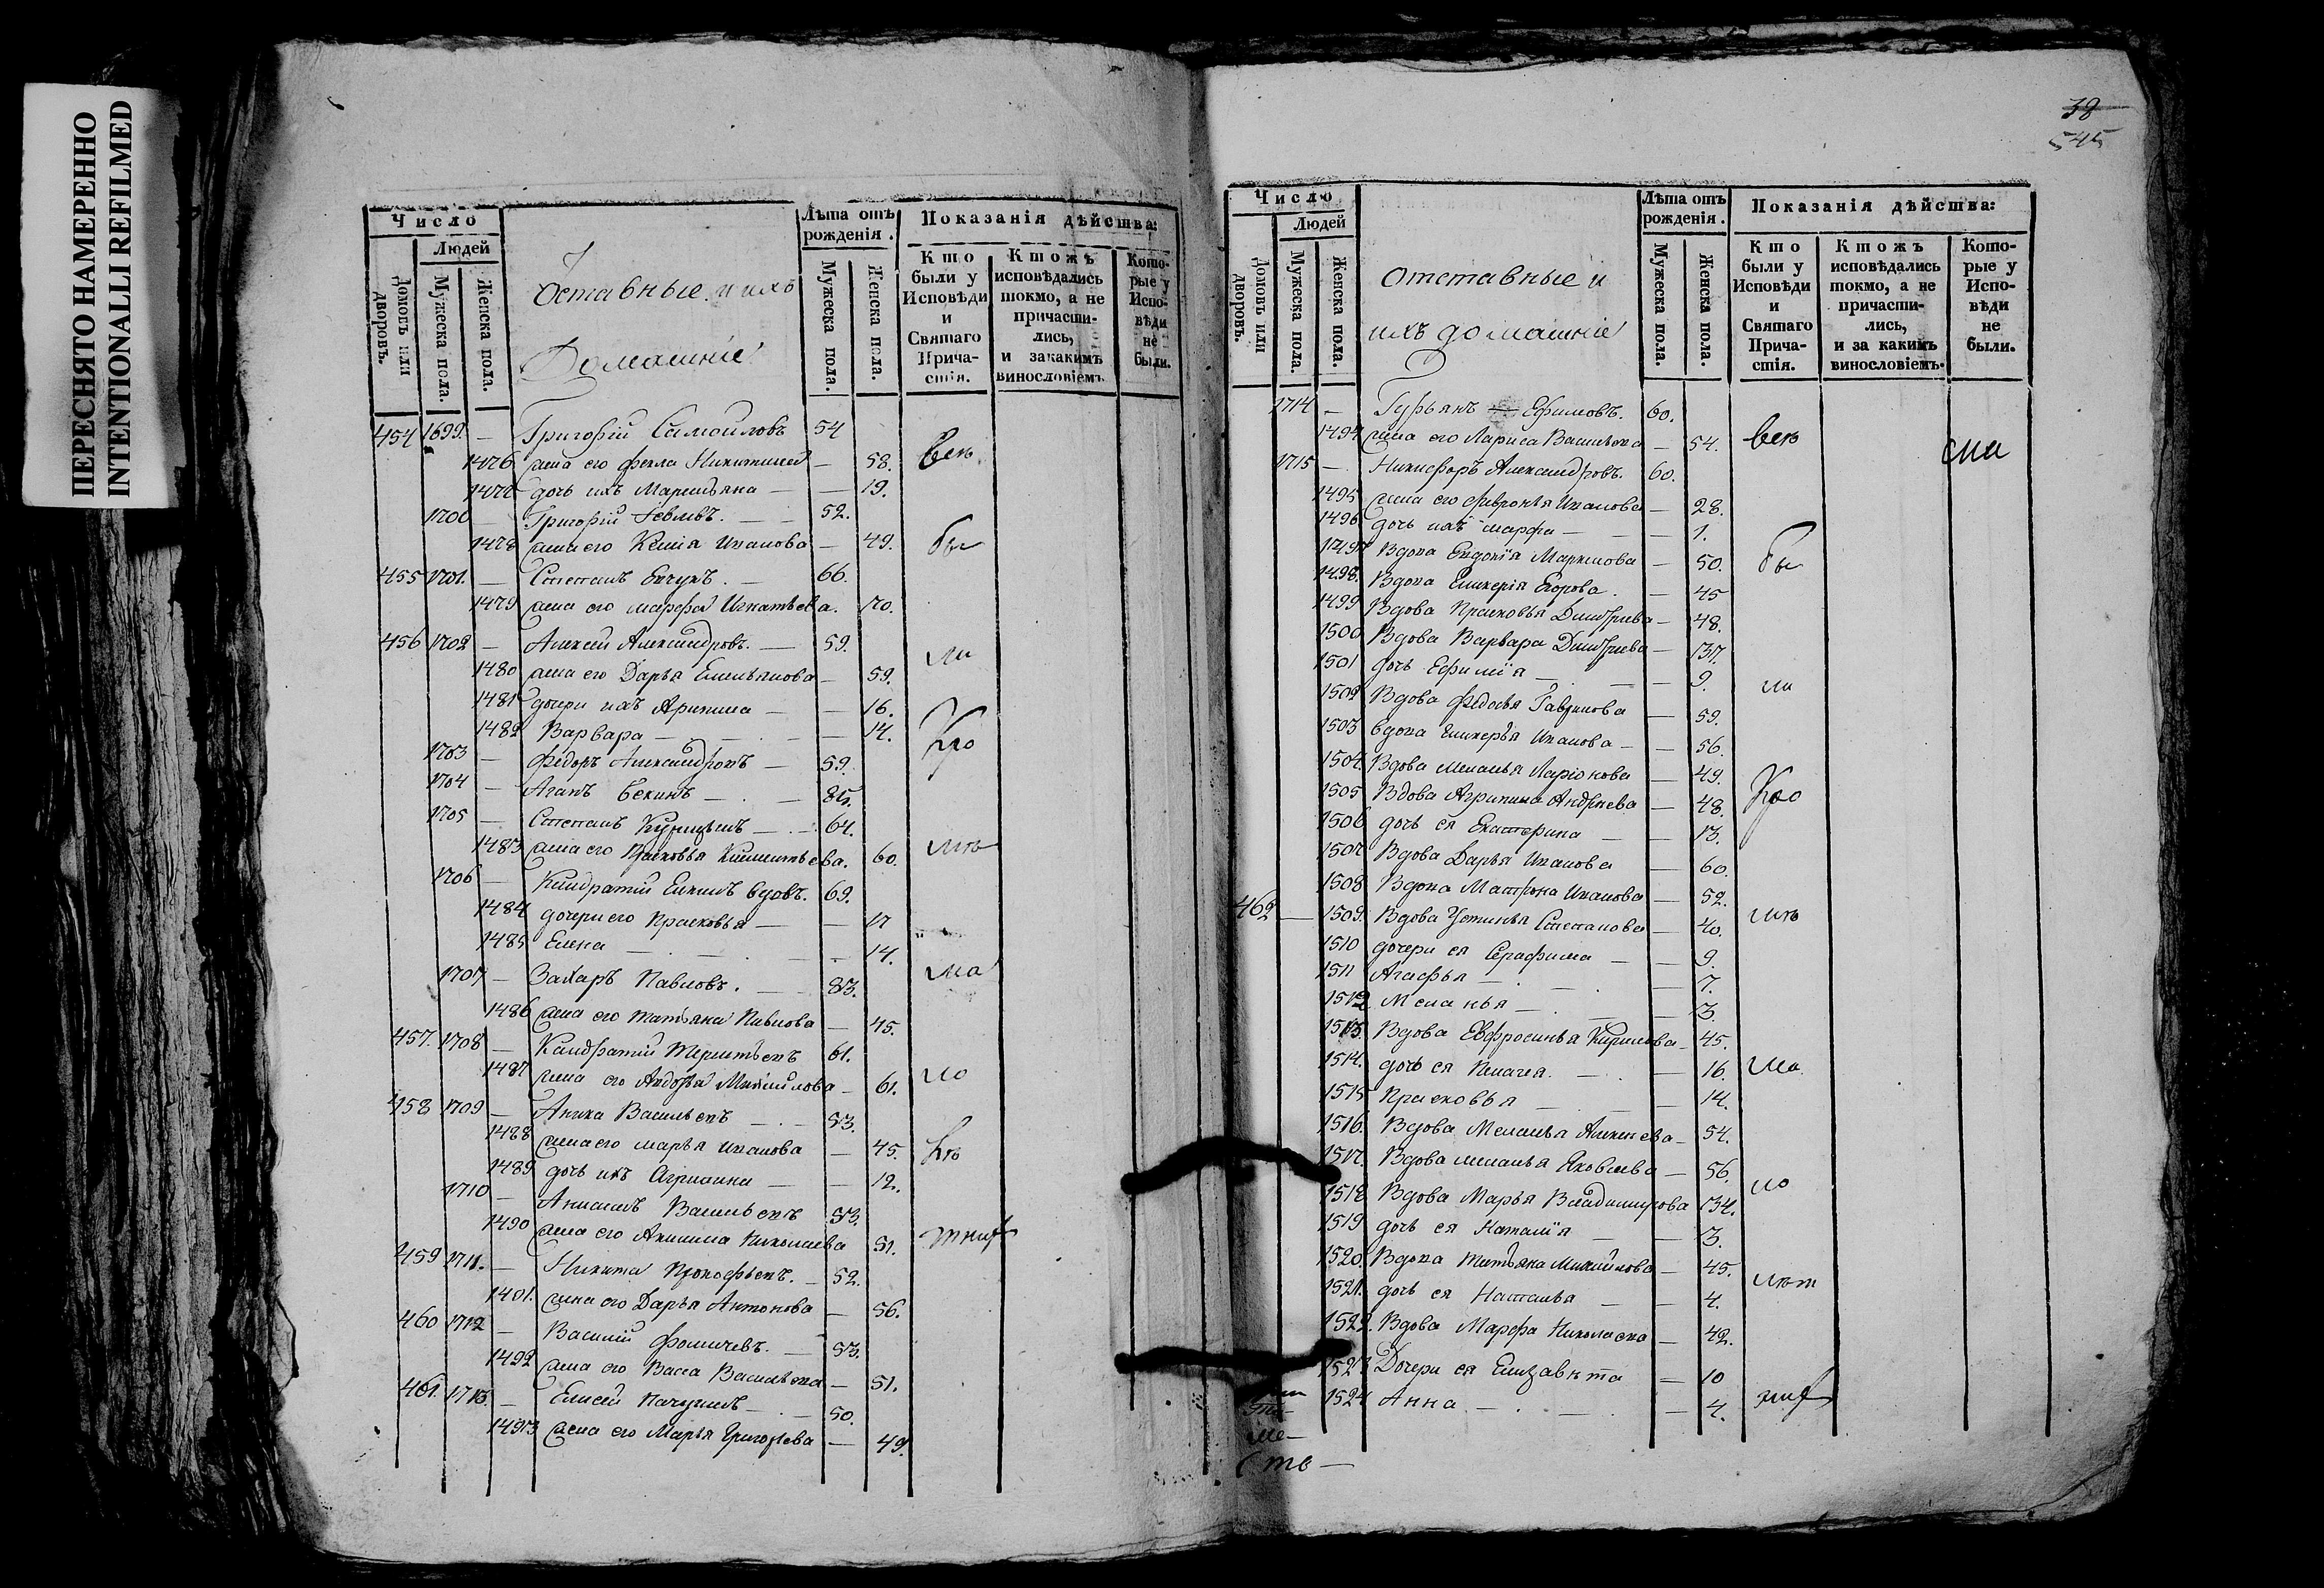 ПЕРЕСНЯТО НАМЕРЕННО
INTENTIONALLI REFILMED
Число
Людей
Домовъ или дворовъ.
Мужеска пола.
Женска пола.
Оставные и ихъ
Домашніе
Лѣта отъ рожденія.
Мужеска пола.
Женска пола.
Показанія дѣйства:
Кто были у Исповѣди и Святаго Причастія.
Ктожъ исповѣдались токмо, а не причастились, и закакимъ винословіемъ
Которые у Исповѣди не были.
454 1699. — Григорій Самойловъ 54
1476 жена его Фекла Никитина — 58.
1477 дочь ихъ Маремьяна — — 19.
1700 — Григорій 52.
1478 жена его Ксенія Иванова — 49.
455 1701. — Степанъ 66.
1479 жена его Марфа Игнатьева. 70.
456 1702 — Алексей Александровъ. — 59.
1480 жена его Дарья Емельянова — 59.
1481 дочери ихъ Арипина — — 16.
1482 Варвара — — 14.
1703 — Федоръ Александровъ — 59.
1704 — Агапъ Бекинъ — 85.
1705 — Степанъ — 64.
1483 жена его Прасковья 60.
1706 — Кандратій вдовъ. 69.
1484 дочери его Прасковья — — 17
1485 Елена — — 14.
1707 — Захаръ Павловъ. — 83.
1486 жена его Татьяна Павлова — 45.
457. 1708 — Кандратій 61.
1487 жена его Авдотья Михайлова — 61.
458 1709 — Аника Васильевъ — 53.
1488 жена его Марья Иванова — 45.
1489 дочь ихъ — — 12.
1710 — Васильевъ 53.
1490 жена его Акилина Николаева 51.
459 1711. — Никита Прокофьевъ. — 52.
1401. жена его Дарья Антонова — 56.
460 1712 — Василій Фомичевъ. — 53.
1492 жена его Васса Васильева — 51.
461. 1713. — Елисей — 50.
1493 жена его Марья Григорьева — 49.
38
545
Число
Людей
Домовъ или дворовъ.
Мужеска пола.
Женска пола.
отставные и
ихъ домашніе
Лѣта отъ рожденія.
Мужеска пола.
Женска пола.
Показанія дѣйства:
Кто были у Исповѣди и Святаго Причастія.
Ктожъ исповѣдались токмо, а не причастились, и за какимъ винословіемъ.
Которые у Исповѣди не были.
1714 — Гурьянъ — Ефимовъ. 60.
1494 жена его Лариса Васильева — 54.
1715 — Никифоръ Александровъ. 60.
1495 жена его Февронья Иванова — 28.
1496 дочь ихъ Марфа — — 1.
1497 Вдова Евдокія Маркелова — 50.
1498. Вдова Гликерія Егорова. — 45
1499 Вдова Прасковья Дмитріева — 48.
1500 Вдова Варвара Дмитріева — 37.
1501 дочь Ефимія — — 9.
1502 Вдова Федосья Гаврилова — 59.
1503 вдова Гликерья Иванова — 56.
1504. Вдова Меланья Ларіонова — 49.
1505 Вдова Агрипина Андреева — 48.
1506 дочь ея Екатерина — 13.
1507 Вдова Дарья Иванова — 60.
1508 Вдова Матрона Иванова — 52.
462 — 1509. Вдова Устинья Степанова — 40.
1510 дочери ея Серафима — — 9.
1511 Агафья — — 7.
1512 Меланья — — 3.
1513. Вдова Евфросинья Кирилова — 45.
1514. дочь ея Пелагея. — — 16.
1515 Прасковья — — 14.
1516. Вдова Меланья Алексеева — 54.
1517. Вдова Меланья Яковлева — 56.
1518 Вдова Марья Владимирова 34.
1519 дочь ея Наталія — — 3.
1520. Вдова Татьяна Михайлова — 45.
1521. дочь ея Наталья — — 4.
1522. Вдова Марфа Николаева — 42.
1523 Дочери ея Елизавета — 10
1524 Анна — — 4.